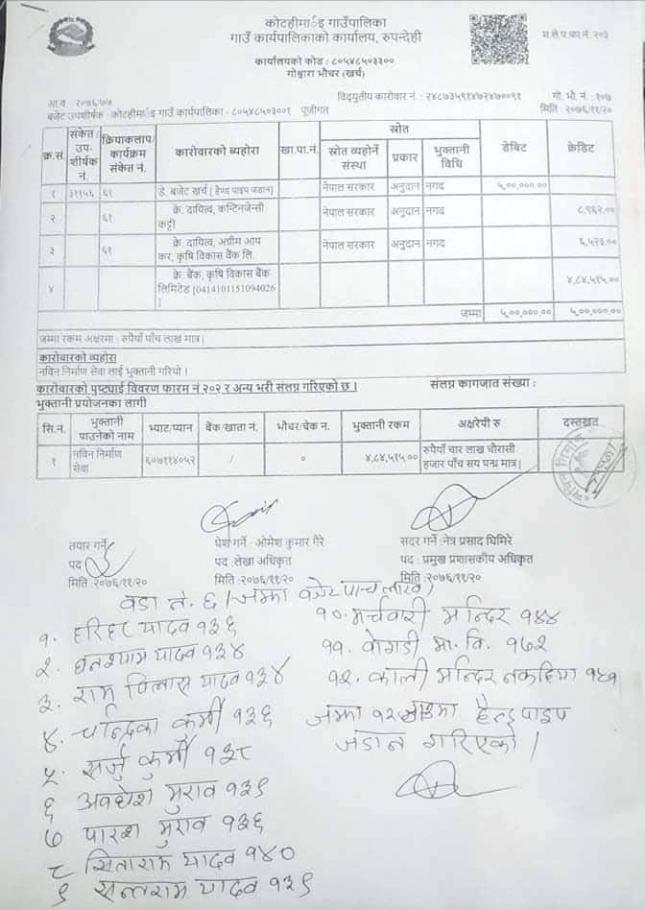 कोटहीमाई गाउँपालिका
गाउँ कार्यपालिकाको कार्यालय, रुपन्देही
कार्यालयको कोड : ८०५४८५०३३००
गोश्वारा भौचर (खर्च)
म.ले.प.फा.नं. २०३
आ.व. : २०७६/७७
विद्युतीय कारोवार नं. : २४८७३५९१४७२४७००९१
गो. भौ. नं. : १०७
बजेट उपशीर्षक : कोटहीमाई गाउँ कार्यपालिका - ८०५४८५०३००१ पूंजीगत
मिति : २०७६/११/२०
क्र.सं. संकेत / उप-शीर्षक नं. क्रियाकलाप/कार्यक्रम संकेत नं. कारोवारको ब्यहोरा खा.पा.नं. स्रोत डेबिट क्रेडिट
स्रोत व्यहोर्ने संस्था प्रकार भुक्तानी विधि
१ ३११५६ ६१ डे. बजेट खर्च ( हैण्ड पाइप जडान) नेपाल सरकार अनुदान नगद ५,००,०००.००
२ ६१ क्रे. दायित्व, कन्टिनजेन्सी कट्टी नेपाल सरकार अनुदान नगद ८,९६२.००
३ ६१ क्रे. दायित्व, अग्रीम आय कर, कृषि विकास बैंक लि. नेपाल सरकार अनुदान नगद ६,५२३.००
४ क्रे. बैंक, कृषि विकास बैंक लिमिटेड [0414101151094026 ] ४,८४,५१५.००
जम्मा ५,००,०००.०० ५,००,०००.००
जम्मा रकम अक्षरमा : रुपैयाँ पाँच लाख मात्र।
कारोवारको ब्यहोरा
नविन निर्माण सेवा लाई भुक्तानी गरियो ।
कारोवारको पुष्ट्याई विवरण फारम नं २०२ र अन्य भरी संलग्न गरिएको छ । संलग्न कागजात संख्या :
भुक्तानी प्रयोजनका लागी
सि.नं. भुक्तानी पाउनेको नाम भ्याट/प्यान बैंक/खाता नं. भौचर/चेक नं. भुक्तानी रकम अक्षरेपी रु दस्तखत
१ नविन निर्माण सेवा ६०७११४०५२ / ० ४,८४,५१५.०० रुपैयाँ चार लाख चौरासी हजार पाँच सय पन्ध्र मात्र।
तयार गर्ने पेश गर्ने : ओमेश कुमार गैरे सदर गर्ने :नेत्र प्रसाद घिमिरे
पद : पद :लेखा अधिकृत पद : प्रमुख प्रशासकीय अधिकृत
मिति :२०७६/११/२० मिति :२०७६/११/२० मिति :२०७६/११/२०
वडा नं. ६ (जम्मा पाच लाख)
१. हरिहर यादव १३६
२. घनश्याम यादव १३४
३. राम विलास यादव १३४
४. चन्द्रिका कुर्मी १३६
५. सर्जु कुर्मी १३८
६ अवधेश मुराव १३९
७ पारश मुराव १३६
८ सिताराम यादव १४०
९ सन्तराम यादव १३९
१०. मर्चवारी मन्दिर १४४
११. वोगडी मा. वि. १७२
१२. काली मन्दिर १५१
जम्मा १२ हैन्ड पाइप
जडान गरिएको।